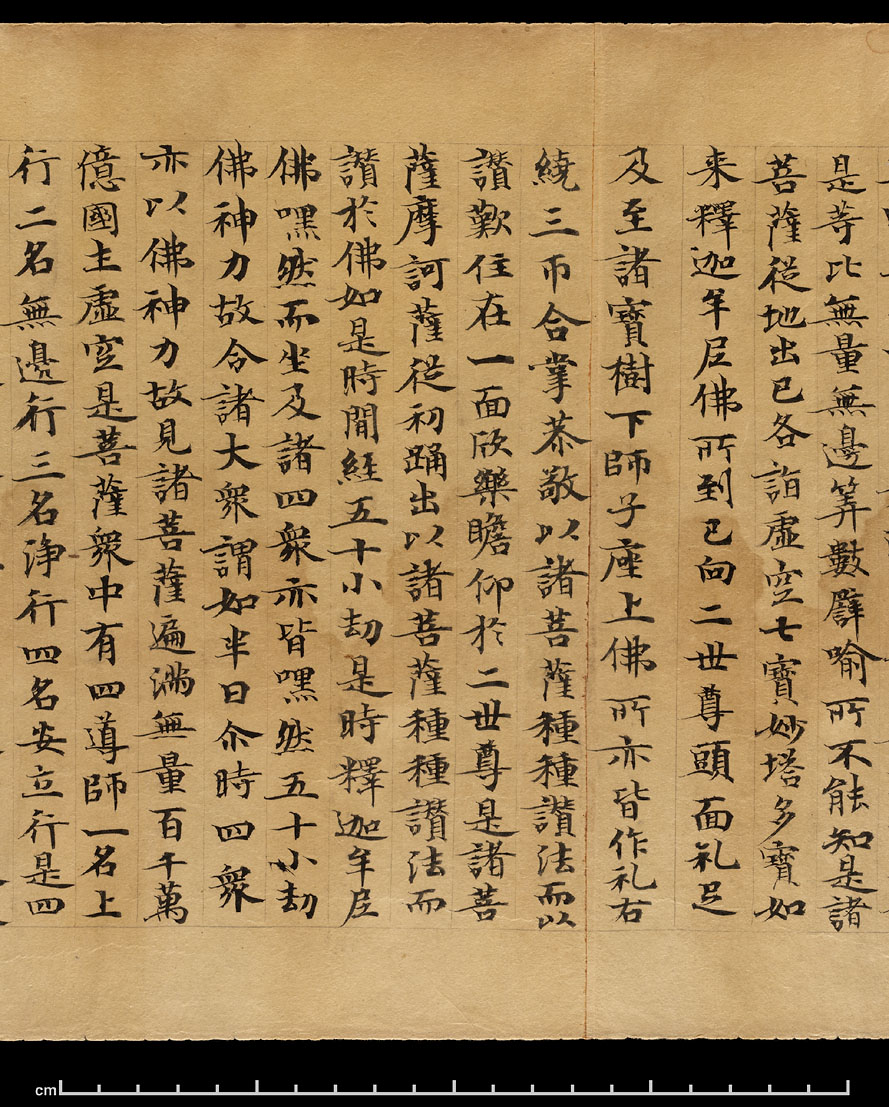 是等比無量無邊筭數譬喻所不能知是諸
菩薩從地出已各詣虛空七寶妙塔多寶如
来釋迦牟尼佛所到已向二世尊頭面礼足
及至諸寶樹下師子座上佛所亦皆作礼右
繞三帀合掌恭敬以諸菩薩種種讚法而以
讚歎住在一面欣樂瞻仰於二世尊是諸菩
薩摩訶薩從初踊出以諸菩薩種種讚法而
讚於佛如是時間經五十小劫是時釋迦牟尼
佛嘿然而坐及諸四衆亦皆嘿然五十小劫
佛神力故令諸大衆謂如半日尒時四衆
亦以佛神力故見諸菩薩遍滿無量百千萬
億國土虛空是菩薩衆中有四導師一名上
行二名無邊行三名淨行四名安立行是四
cm